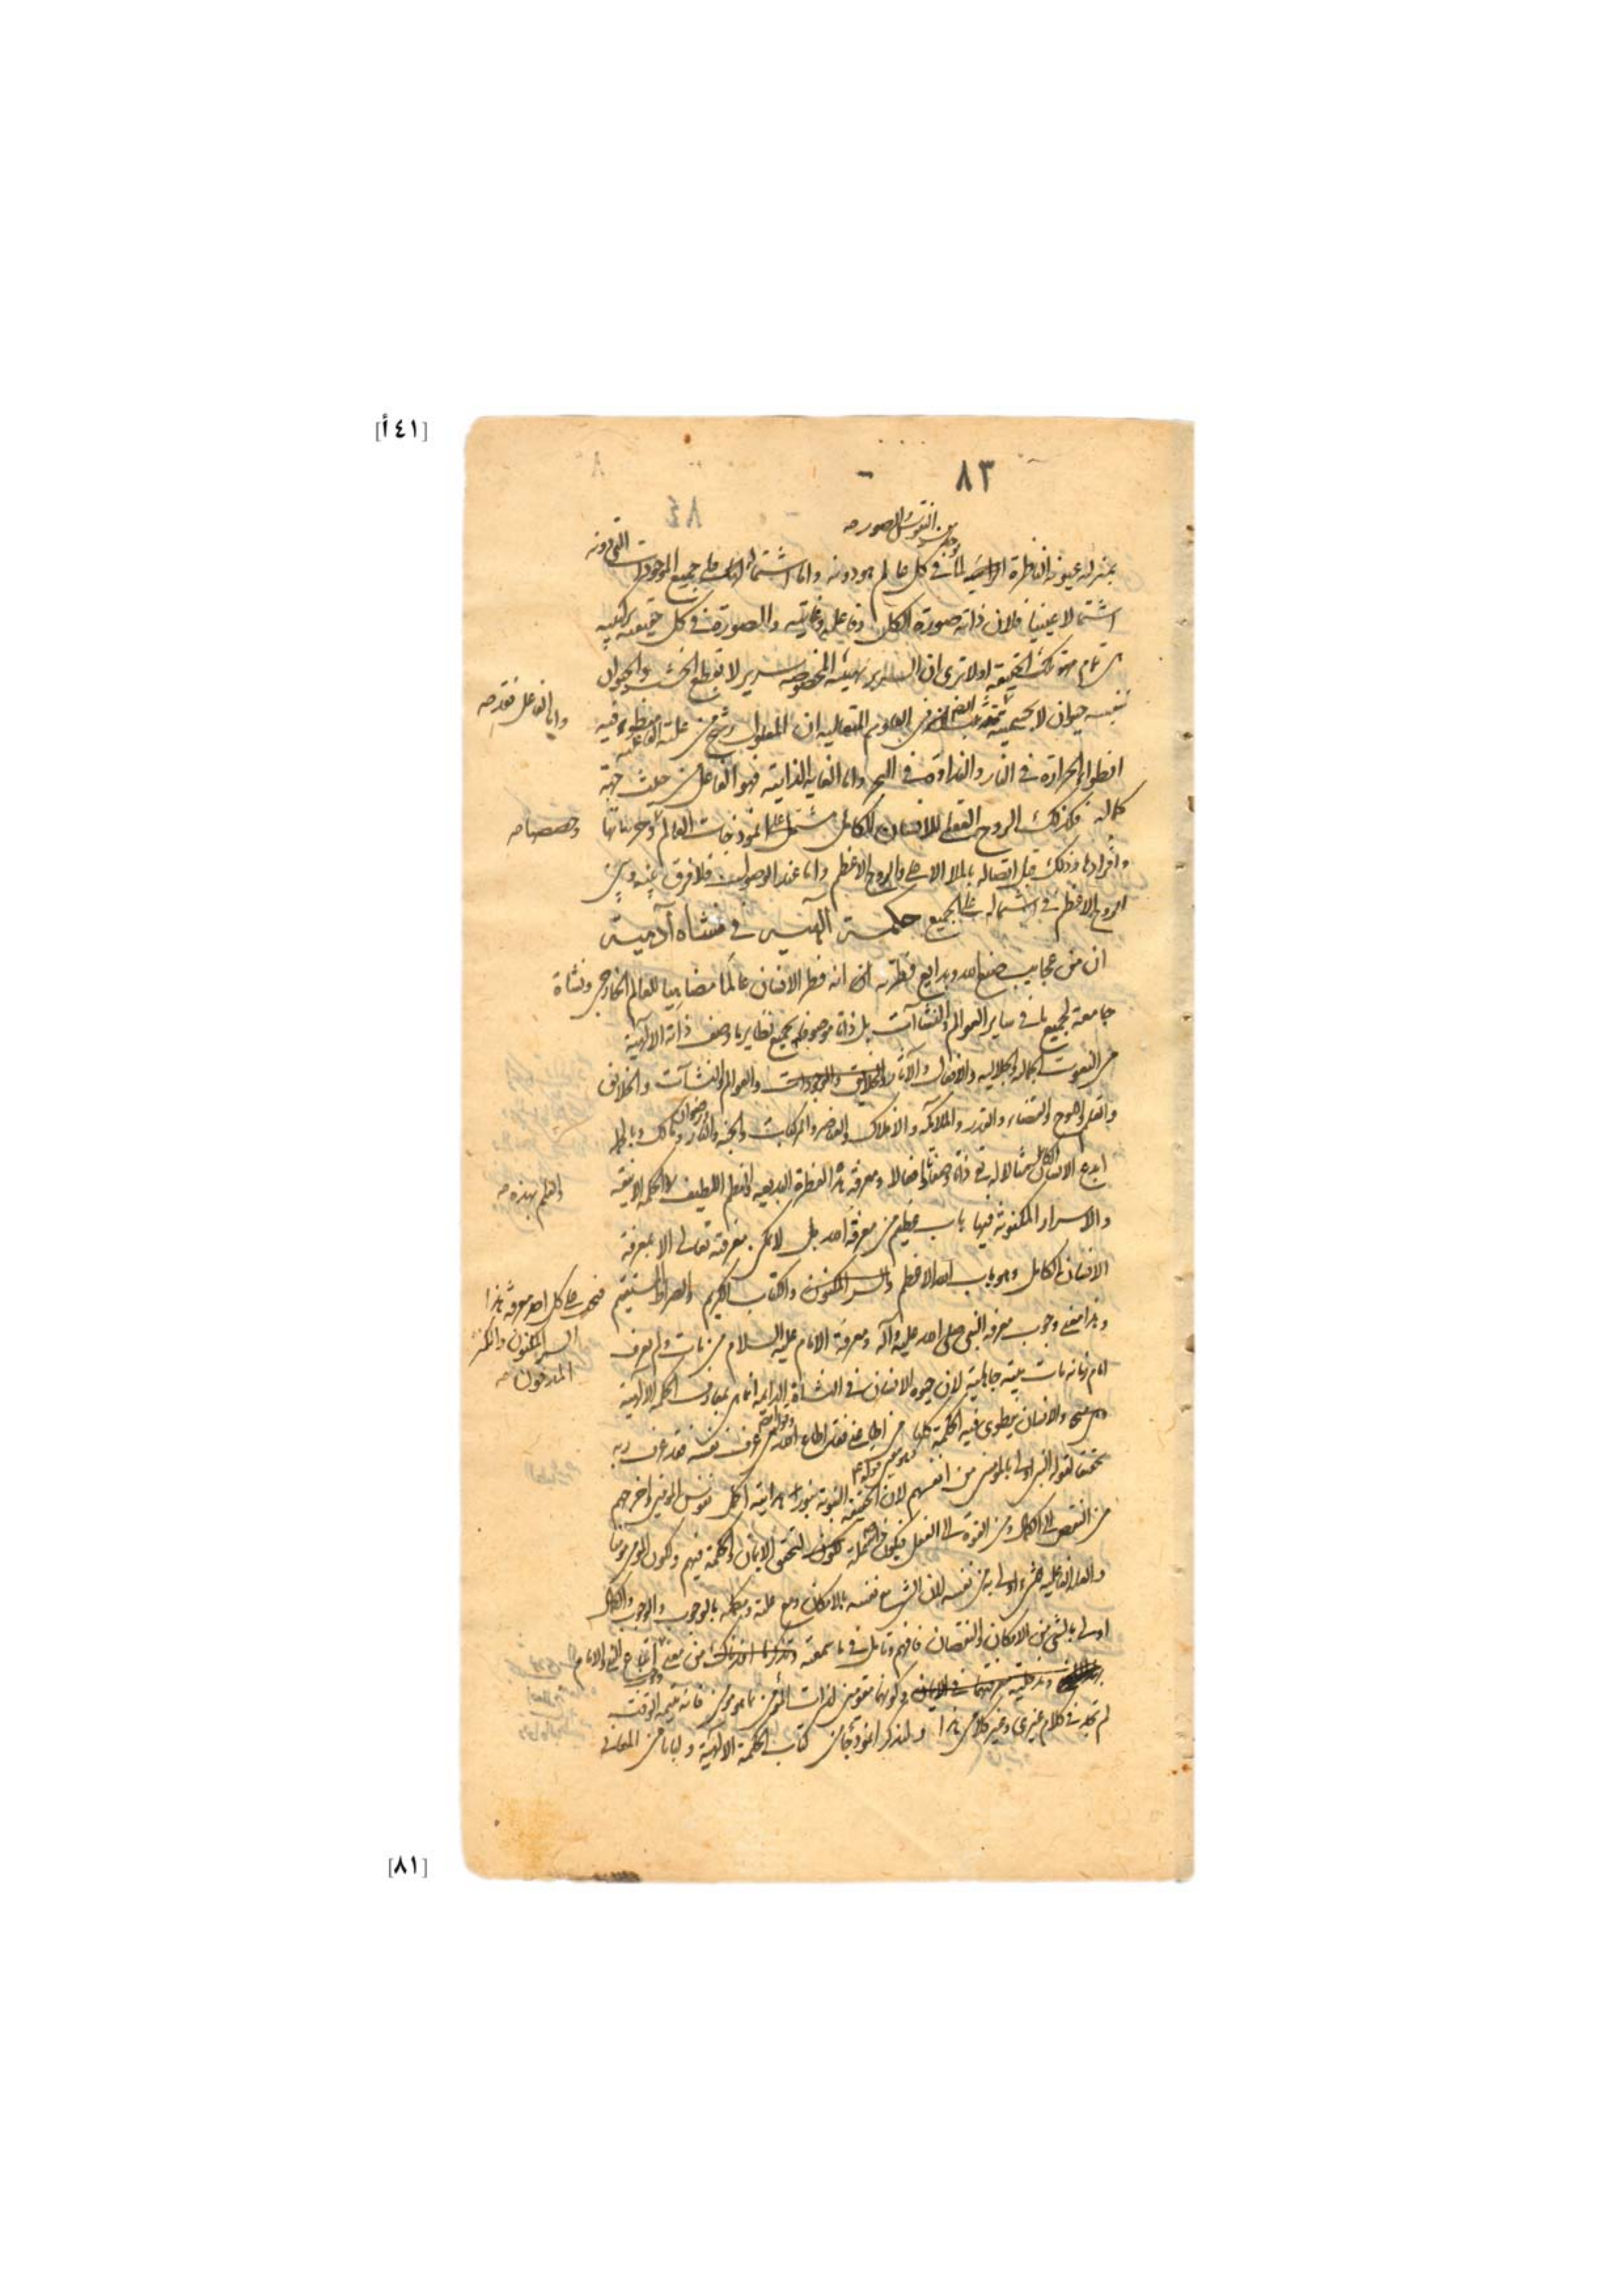 [٤١أ]
٨٣
٨٤
من النقوش والصور صه
بمنزلة عيونه الناظرة لما في كل عالم هو دونه واما اشتماله على جميع الموجودات التي دونه
اشتمالا عينيا فلان ذاته صورة الكل وفاعليه وغايته والصورة في كل حقيقة تركيبية
هي تمام تلك الحقيقة اولا ترى ان السرير بهيئته المخصوصة سرير لا بقطع الخشب والحيوان
بنفسه حيوان لا بجسميته في العلوم المتعالية ان المعلول رشح من علته الفاعلية منطو فيه
واما الفاعل فقد صه
انطواء الحرارة في النار والنداوة في البحر واما الغاية الذاتية فهو الفاعل من حيث جهة
كماله فكذلك الروح العقلي للانسان الكامل مشتمل على انموذجات العالم وجزئياتها
وحصصها صه
وافرادها وذلك قبل اتصاله بالملأ الاعلى والروح الاعظم واما عند الوصول فلا فرق بينه وبين
الروح الاعظم في اشتماله على الجميع حكمة الهية في نشاه آدمية
ان من عجايب صنع الله وبدايع فطرته انه فطر الانسان عالما مضاهيا للعالم الخارجي ونشاة
جامعة لجميع ما في ساير العوالم والنشآت بل ذاتا موصوفة بجميع نظاير ما وصف ذاته الالهية
من النعوت الجمالية والجلالية والافعال والآثار والخلايق والموجودات والعوالم والنشآت والخلائق
والقلم واللوح والقضاء والقدر والملائكة والافلاك والعناصر والمركبات والجنة والنار ورضوان ومالك وبالجملة
ابدع الانسان الكامل مثالا له تع ذاتا وصفتا وافعالا ومعرفة هذه الفطرة البديعة والنظم اللطيف والحكمة الانيقة
والعلم بهذه صه
والاسرار المكنونة فيها باب عظيم من معرفة الله بل لا يمكن معرفته تعالى الا بمعرفة
الانسان الكامل وهو باب الله الاعظم والسر المكنون والكتاب الكريم والصراط المستقيم
فيجب على كل احد معرفة هذا
السر المكنون والكنز
المدفون صه
وهذا معنى وجوب معرفة النبي صلى الله عليه وآله ومعرفة الامام عليه السلام من مات ولم يعرف
امام زمانه مات ميتة جاهلية لان حيوة الانسان في النشاة الدايمة انما هي بمعارف الحكمة الالهية
والانسان ينطوي فيه الحكمة كلها من اطاعني فقد اطاع الله من عرف نفسه فقد عرف ربه
تحقيقا لقوله النبي اولى بالمؤمنين من انفسهم لان الحقيقة النبوية بنور هدايته اكمل نفوس المؤمنين واخرجهم
من النقص الى الكمال ومن القوة الى الفعل فيكون لتحقق الايمان والحكمة فيهم ولكون المؤمن مؤمنا
والعلة الفاعلية للشيء اولى به من نفسه لان الشيء مع نفسه بالامكان ومع علته ومكمله بالوجوب والوجوب والكمال
اولى بالشيء من الامكان والنقصان فافهم وتامل في ما سمعته من معنى اتباع النبي والامام
في كونهما مقومين لذات المؤمن بما هو مؤمن فانه يتيمة الوقت
لم تجد في كلام غيري وغير كلامي هذا ولنذكر انموذجا من كتاب الحكمة الالهية ولبابا من المعاني
[٨١]